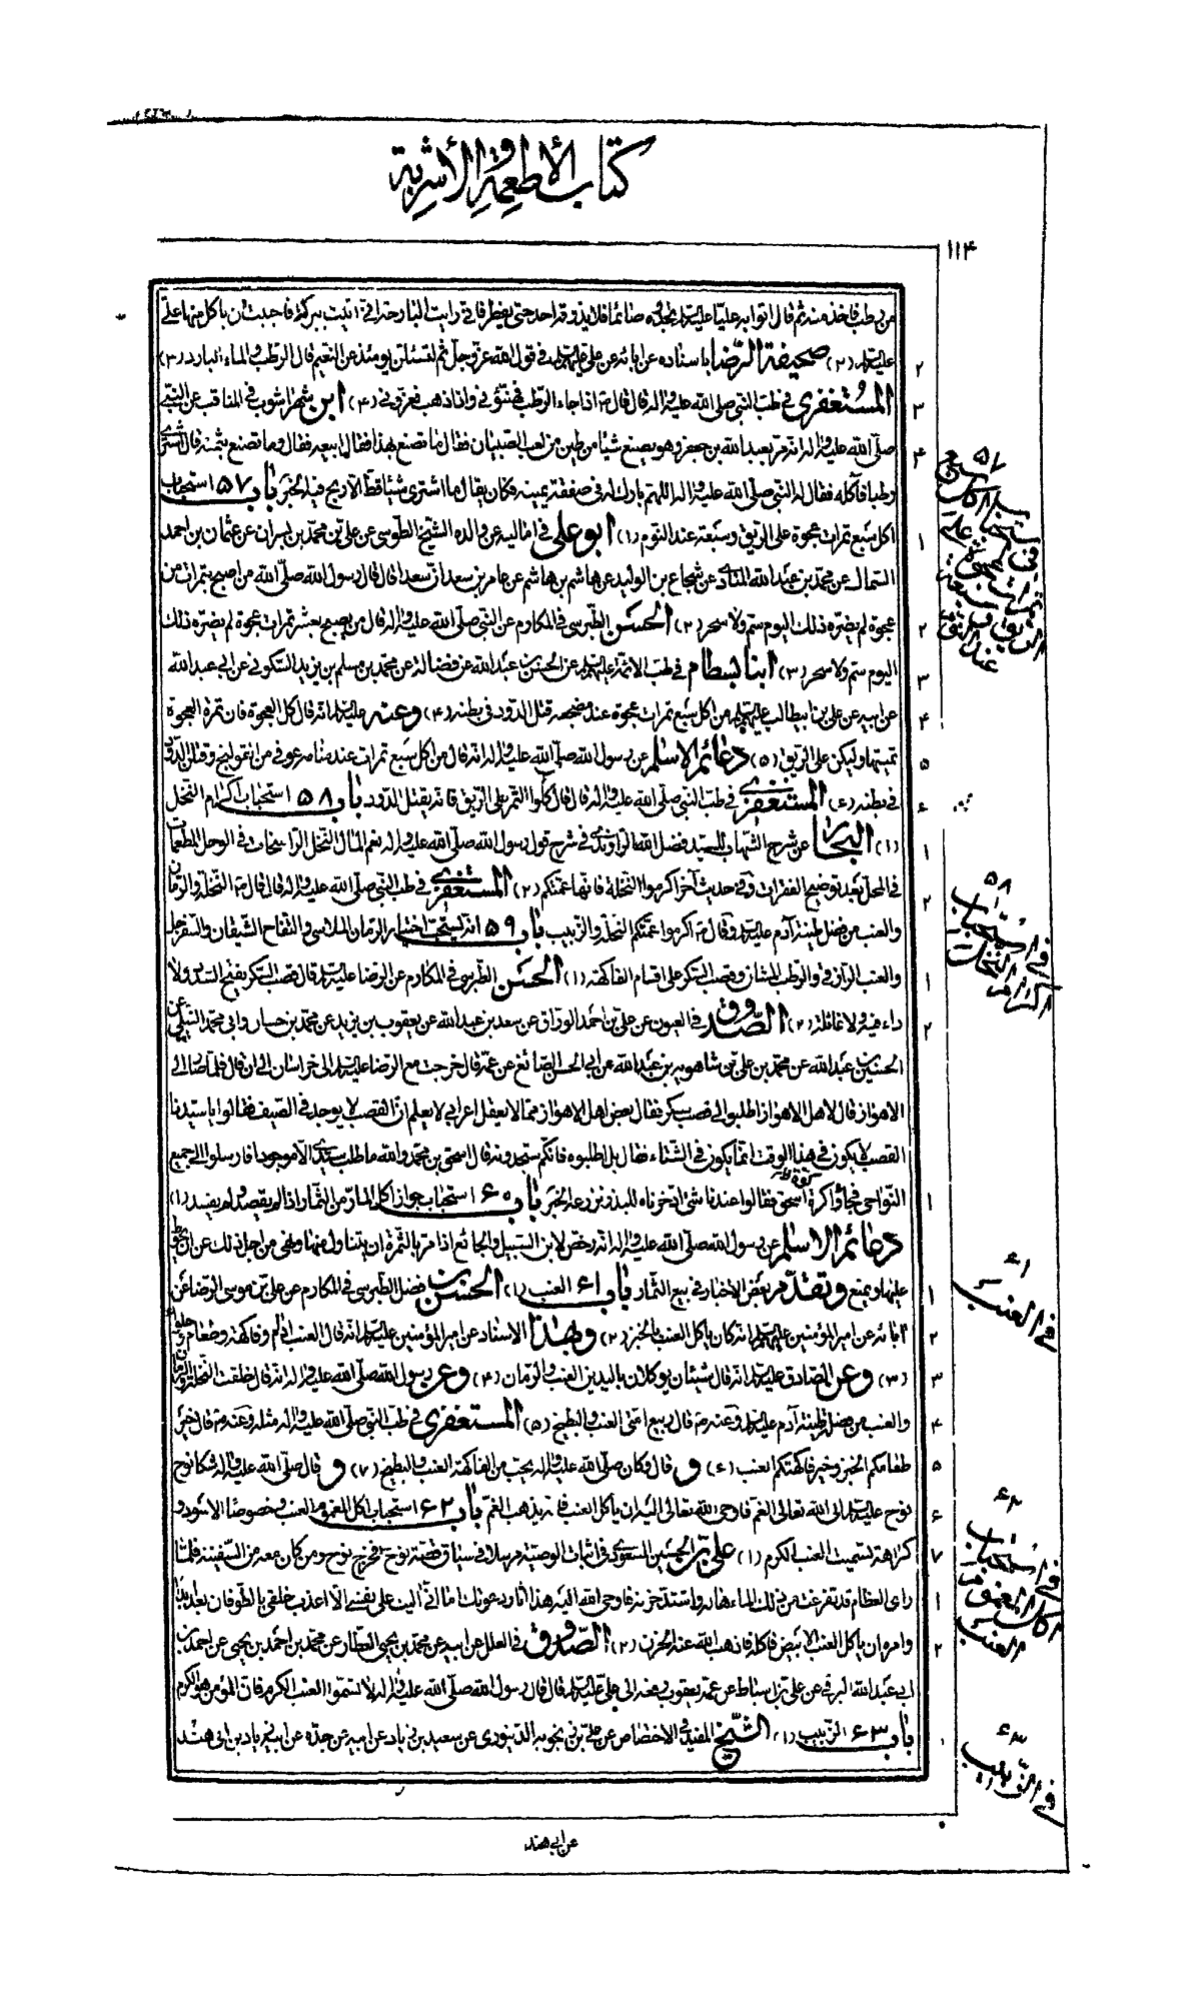 كتاب الأطعمة والأشربة
١١۴
من رطب فاخذ منه ثم قال اتوا به عليا عليه السلام تجدوه صائما فلا يذوقه احد حتى يفطر فانى رايت البارحة انى اتيت ببركة فاحببت ان ياكل منها على
عليه السلام (٢) صحيفة الرضا باسناده عن ابائه عن على عليهم السلام فى قول الله عز وجل ثم لتسئلن يومئذ عن النعيم قال الرطب والماء البارد (٣)
المستغفرى فى طب النبى صلى الله عليه واله قال قال ص اذا جاء الرطب فهنؤنى واذا ذهب فعزونى (۴) ابن شهراشوب فى المناقب عن النبى
صلى الله عليه واله انه مر بعبد الله بن جعفر وهو يصنع شيئا من طين من لعب الصبيان فقال ما تصنع بهذا فقال ابيعه فقال وما تصنع بثمنه قال اشترى
رطبا فآكله فقال له النبى صلى الله عليه واله اللهم بارك له فى صفقة يمينه فكان يقال ما اشترى شيئا قط الا ربح فيه الخبر باب ۵٧ استحباب
اكل سبع تمرات عجوة على الريق وسبعة عند النوم (١) ابو على فى اماليه عن والده الشيخ الطوسى عن على بن محمد بن بسران عن عثمان بن احمد
السماك عن محمد بن عبد الله المنادى عن شجاع بن الوليد عن هاشم بن هاشم عن عامر بن سعد ان سعدا قال قال رسول الله صلى الله من اصبح بتمرات من
عجوة لم يضره ذلك اليوم سم ولا سحر (٢) الحسن الطبرسى فى المكارم عن النبى صلى الله عليه واله قال من يصبح بعشر تمرات عجوة لم يضره ذلك
اليوم سم ولا سحر (٣) ابنا بسطام فى طب الائمة عليهم السلام عن الحسين بن عبد الله عن فضالة عن محمد بن مسلم بن يزيد السكونى عن ابى عبد الله
عن ابيه عن على بن ابيطالب عليهم السلام من اكل سبع تمرات عجوة عند مضجعه قتل الدود فى بطنه (۴) وعنه عليه السلام انه قال كل العجوة فان تمرة العجوة
تميتها وليكن على الريق (۵) دعائم الاسلام عن رسول الله صلى الله عليه واله انه قال من اكل سبع تمرات عند منامه عوفى من القولنج وقتلن الدود
فى بطنه (۶) المستغفرى فى طب النبى صلى الله عليه واله قال قال كلوا التمر على الريق فانه يقتل الدود باب ۵٨ استحباب اكرام النخل
(١) البحار عن شرح الشهاب للسيد فضل الله الراوندى فى شرح قول رسول الله صلى الله عليه واله نعم المال النخل الراسخات فى الوحل المطعمات
فى المحل بعد توضيح الفقرات وفى حديث آخر اكرموا النخلة فانها عمتكم (٢) المستغفرى فى طب النبى صلى الله عليه واله قال قال ص النخلة والرمان
والعنب من فضل طينة آدم عليه السلام وقال ص اكرموا عمتكم النخلة والزبيب باب ۵٩ انه يستحب اختيار الرمان الملاسى والتفاح الشيقان والسفرجل
والعنب الرازقى والرطب المشان وقصب السكر على اقسام الفاكهة (١) الحسن الطبرسى فى المكارم عن الرضا عليه السلام قال قصب السكر يفتح السدد ولا
داء فيه ولا غائلة (٢) الصدوق فى العيون عن على بن احمد الوراق عن سعد بن عبد الله عن يعقوب بن يزيد عن محمد بن حسان وابى محمد النيلى عن
الحسين بن عبد الله عن محمد بن على بن شاهويه بن عبد الله عن ابى الحسن الصائغ عن عمه قال خرجت مع الرضا عليه السلام الى خراسان الى ان قال فلما صار الى
الاهواز قال لاهل الاهواز اطلبوا لى قصب سكر فقال بعض اهل الاهواز ممن لا يعقل اعرابى لا يعلم ان القصب لا يوجد فى الصيف فقالوا يا سيدنا
القصب لا يكون فى هذا الوقت انما يكون فى الشتاء فقال بل اطلبوه فانكم ستجدونه قال اسحق بن محمد والله ما طلب سيدى الا موجودا فارسلوا الى جميع
النواحى فجاؤا اكرة اسحق فقالوا عندنا شىء ادخرناه للبذر نزرعه الخبر باب ۶٠ استحباب جواز اكل المار من الثمار اذا لم يقصد ولم يفسد (١)
دعائم الاسلام عن رسول الله صلى الله عليه واله انه رخص لابن السبيل والجائع اذا مر بالثمرة ان يتناول منها ونهى من اجل ذلك عن ان يحوط
عليها ويمنع وتقدم بعض الاخبار فى بيع الثمار باب ۶١ العنب (١) الحسن بن فضل الطبرسى فى المكارم عن على بن موسى الرضا عن
ابائه عن امير المؤمنين عليهم السلام انه كان ياكل العنب بالخبز (٢) وبهذا الاسناد عن امير المؤمنين عليه السلام انه قال العنب ادم وفاكهة وطعام وحلواء
(٣) وعن الصادق عليه السلام انه قال شيئان يوكلان باليدين العنب والرمان (۴) وعن رسول الله صلى الله عليه واله انه قال خلقت النخلة والرمان
والعنب من فضل طينة آدم عليه السلام وعنه ص قال ربيع امتى العنب والبطيخ (۵) المستغفرى فى طب النبى صلى الله عليه واله مثله وعنه ص قال خير
طعامكم الخبز وخير فاكهتكم العنب (۶) و قال وكان صلى الله عليه واله يحب من الفاكهة العنب والبطيخ (٧) و قال صلى الله عليه واله شكا نوح
نوح عليه السلام الى الله تعالى الغم فاوحى الله تعالى اليه ان ياكل العنب فانه يذهب الغم باب ۶٢ استحباب اكل المغموم العنب وخصوصا الاسود و
كراهة تسميت العنب الكرم (١) على بن الحسين المسعودى فى اثبات الوصية مرسلا فى سياق قصة نوح فخرج نوح ومن كان معه من السفينة فلما
راى العظام قد تفرغت من ذلك الماء هاله واشتد حزنه فاوحى الله اليه هذا اثار دعوتك اما انى آليت على نفسى الا اعذب خلقى بالطوفان بعد ابدا
وامره ان ياكل العنب الابيض فاكله فاذهب الله عنه الحزن (٢) الصدوق فى العلل عن ابيه عن محمد بن يحيى العطار عن محمد بن احمد بن يحيى عن احمد بن
ابى عبد الله البرقى عن على بن اسباط عن عمه يعقوب رفعه الى على عليه السلام قال قال رسول الله صلى الله عليه واله لا تسموا العنب الكرم فان المؤمن هو الكرم
باب ۶٣ الزبيب (١) الشيخ المفيد فى الاختصاص عن على بن بنجويه الدينورى عن سعيد بن زياد عن ابيه عن جده عن ابيه زياد بن ابى هند
عن ابى هند
۵٧
عند النوم
۵٨
فى استحباب
اكرام النخلة
۶١
فى العنب
۶٢
فى استحباب
اكل المغموم
العنب
۶٣
فى الزبيب